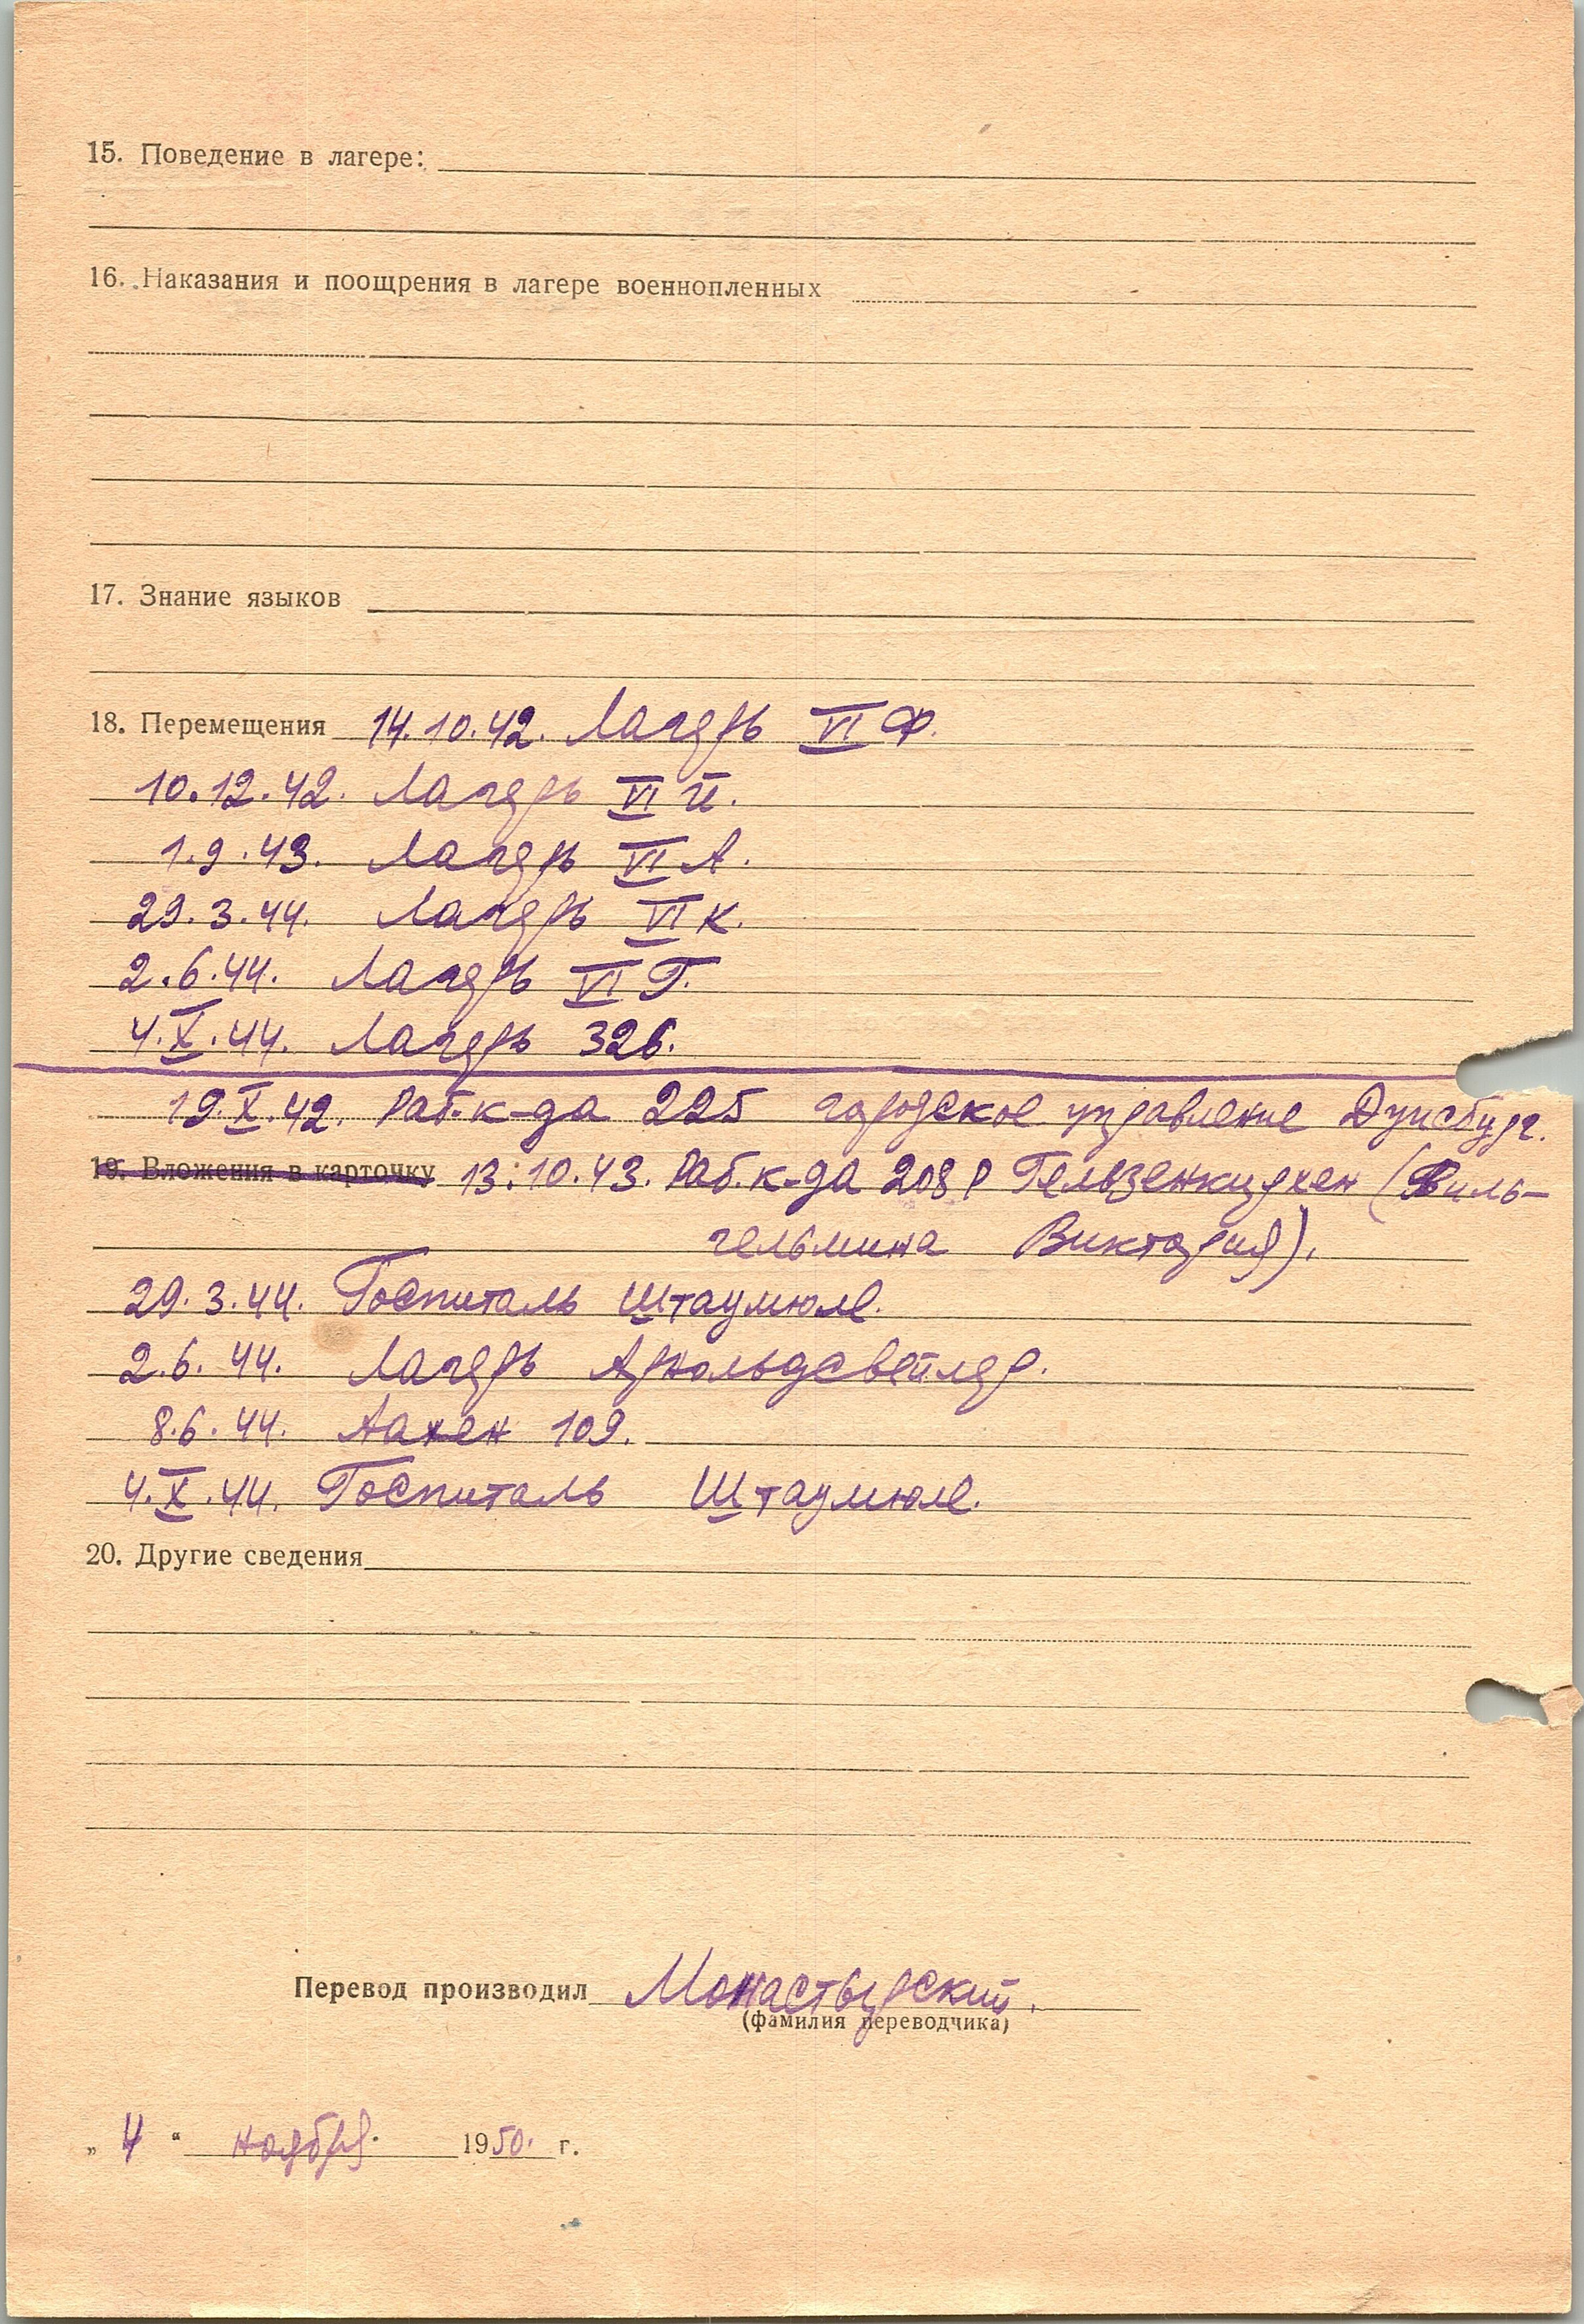 15. Поведение в лагере:
16. Наказания и поощрения в лагере военнопленных
17. Знание языков
18. Перемещения 14.10.42. Лагерь VI Ф.
10.12.42. Лагерь VI й.
1.9.43. Лагерь VI А.
29.3.44. Лагерь VI К.
2.6.44. Лагерь VI Г.
4.X.44. Лагерь 326.
19.X.42. Раб.к-да 225 городское управление Дуисбург.
19. Вложения в карточку 13.10.43. Раб.к-да 208 Р Гельзенкирхен (Виль-
гельмина Виктория).
29.3.44. Госпиталь Штаумюле.
2.6.44. Лагерь Арнольдсвейлер.
8.6.44. Аахен 109.
4.X.44. Госпиталь Штаумюле.
20. Другие сведения
Перевод производил Монастырский.
(фамилия переводчика)
„ 4 “ ноября 1950. г.